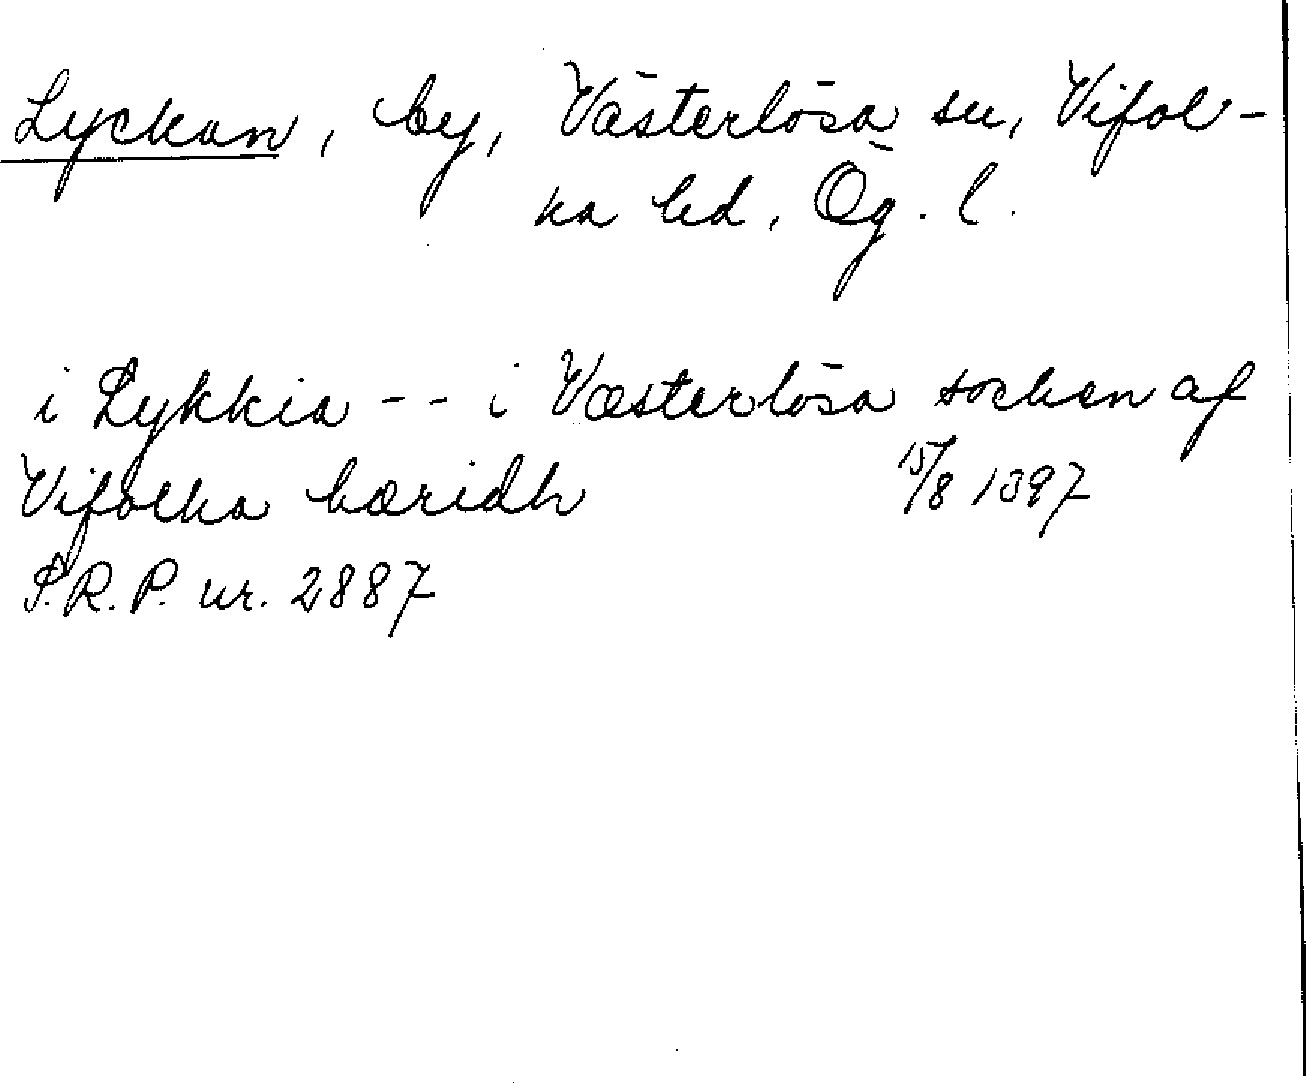 Lyckan, by, Västerlösa sn, Vifol-
ka hd, Ög. l.
i Lykkia -- i Væsterlösa sochen af
Vifolka hæridh 15/8 1397
S.R.P. nr. 2887